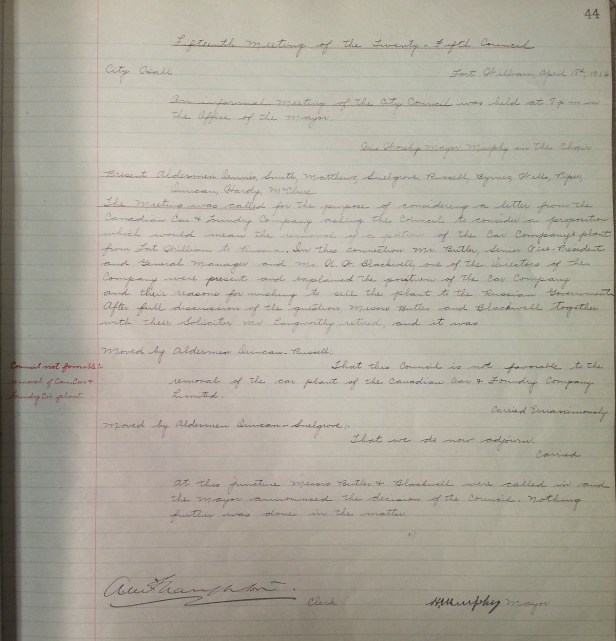 44
Fifteenth Meeting of the Twenty-Fifth Council
City Hall Fort William, April 15th, 191
An informal meeting of the City Council was held at 8 p m in
the Office of the Mayor
His Worship Mayor Murphy in the Chair
Present Aldermen Dennis, Smith, Matthews, Snelgrove, Russell, Byrnes, Wells, Piper,
Duncan, Hardy, McClure
The Meeting was called for the purpose of considering a letter from the
Canadian Car & Foundry Company asking the Council to consider a proposition
which would mean the removal of a portion of the Car Company's plant
from Fort William to Russia. In this connection Mr. Butler, Senior Vice-President
and General Manager and Mr. Blackwell, one of the Directors of the
Company were present and explained the position of the Car Company
and their reasons for wishing to sell the plant to the Russian Government
After full discussion of the question, Messrs Butler and Blackwell together
with their Solicitor Mr. Langworthy retired, and it was
Moved by Aldermen Duncan-Russell
Council not favorable to
That this Council is not favorable to the
removal of Can Car &
removal of the car plant of the Canadian Car & Foundry Company
Foundry Co. plant
Limited.
Carried Unanimously
Moved by Aldermen Duncan-Snelgrove.
That we do now adjourn
Carried
At this juncture Messrs Butler & Blackwell were called in and
the Mayor announced the decision of the Council. Nothing
further was done in the matter
Clerk Murphy Mayor